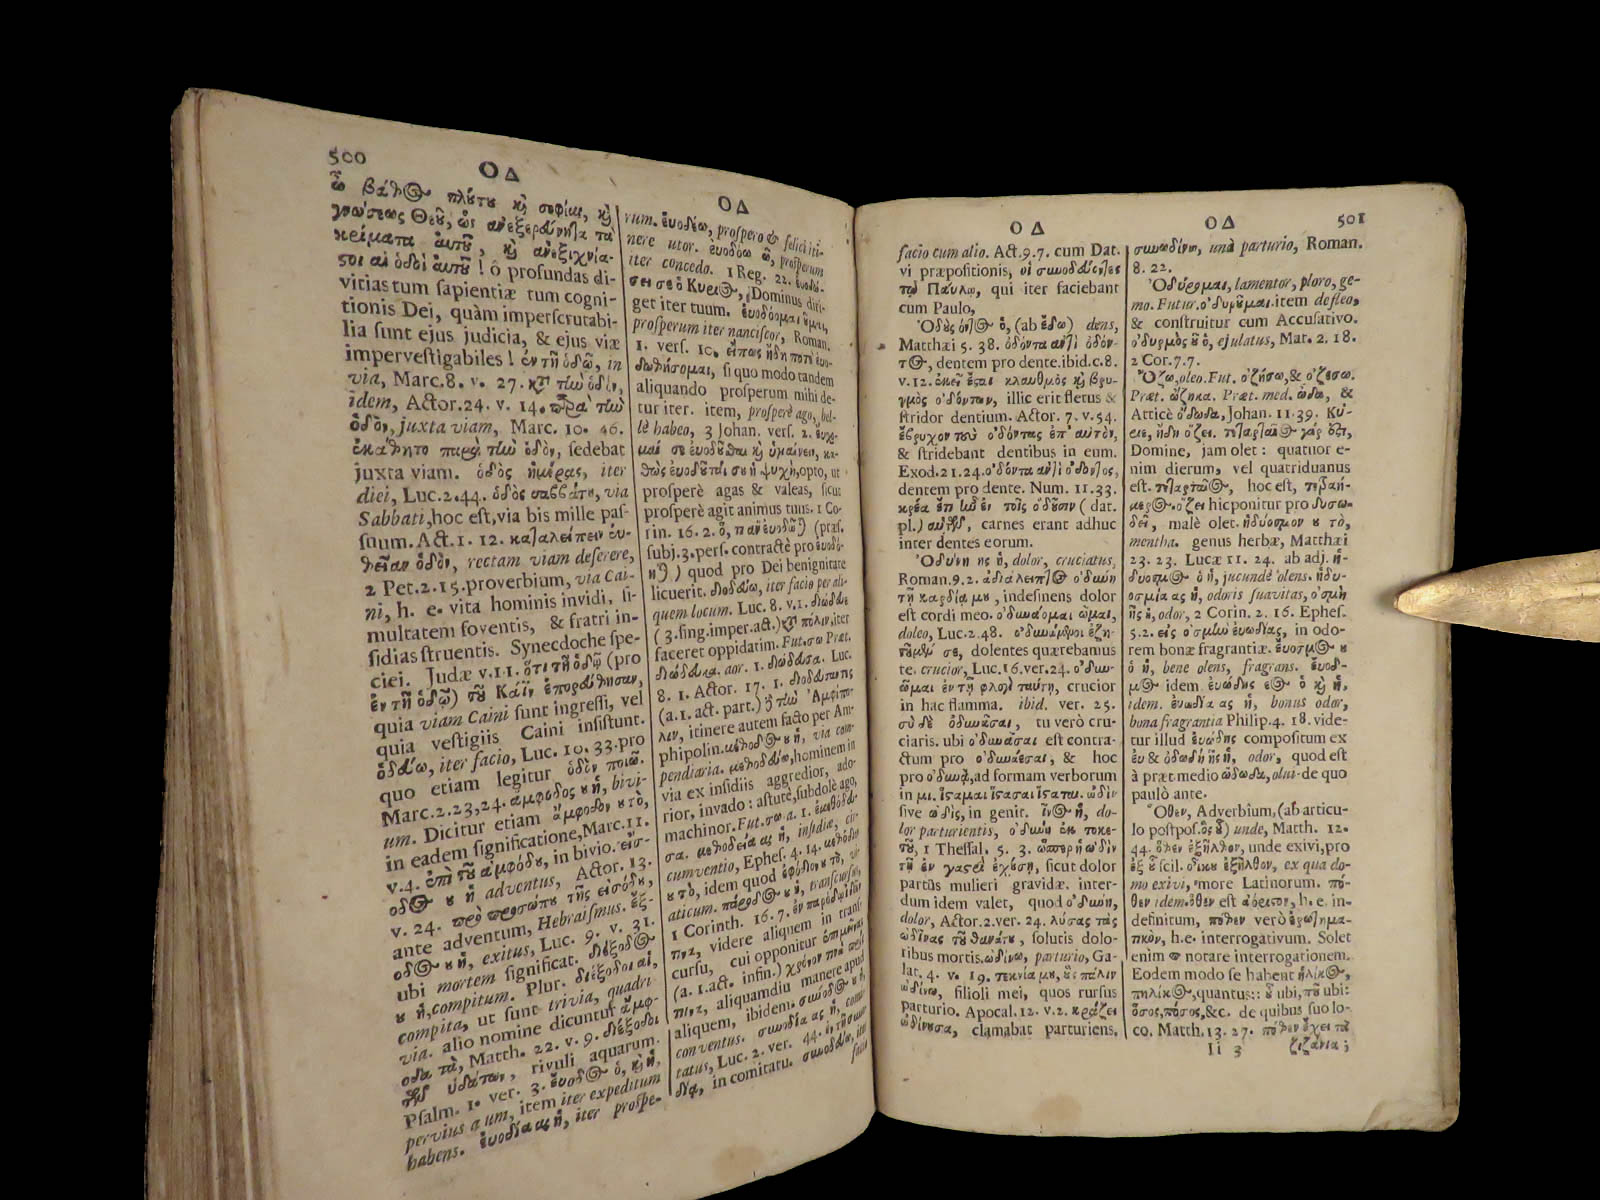 500
ΟΔ
ὦ βάθος πλύτυ κὶ σοφίας, κὶ
γνώσεως Θεοῦ, ὡς ἀνεξερεύνητα τὰ
κείματα ἀυτοῦ, κὶ ἀνεξιχνία-
ςοι αἱ ὁδοὶ ἀυτοῦ! ô profundas di-
vitias tum ſapientiæ tum cogni-
tionis Dei, quàm imperſcrutabi-
lia ſunt ejus judicia, & ejus viæ
imperveſtigabiles! ἐν τῇ ὁδῷ, in
via, Marc.8. v. 27. κατὰ τὴν ὁδὸν,
idem, Actor.24. v. 14. παρὰ τὴν
ὁδὸν, juxta viam, Marc. 10. 46.
ἐκάθητο παρὰ τὴν ὁδὸν, ſedebat
juxta viam. ὁδὸς ἡμέρας, iter
diei, Luc.2.44. ὁδὸς σαββάτυ, via
Sabbati, hoc eſt, via bis mille paſ-
ſuum. Act. 1. 12. καταλείπειν ἐυ-
θεῖαν ὁδὸν, rectam viam deſerere,
2 Pet.2.15. proverbium, via Cai-
ni, h. e. vita hominis invidi, ſi-
multatem foventis, & fratri in-
ſidias ſtruentis. Synecdoche ſpe-
ciei. Judæ v.11. ὅτι τῇ ὁδῷ (pro
ἐν τῇ ὁδῷ) τοῦ Κάϊν ἐπορεύθησαν,
quia viam Caini ſunt ingreſſi, vel
quia veſtigiis Caini inſiſtunt.
ὁδεύω, iter facio, Luc. 10. 33. pro
quo etiam legitur ὁδὸν ποιῶ.
Marc.2.23,24. ἄμφοδος υ ἡ, bivi-
um. Dicitur etiam ἄμφοδον υ τὸ,
in eadem ſignificatione, Marc.11.
v.4. ἐπὶ τοῦ ἀμφόδυ, in bivio. εἴσ-
οδος υ ἡ adventus, Actor. 13.
v. 24. πρὸ προσώπυ τῆς εἰσόδυ,
ante adventum, Hebraiſmus. ἔξ-
οδος υ ἡ, exitus, Luc. 9. v. 31.
ubi mortem ſignificat. διέξοδος
υ ἡ, compitum. Plur. διέξοδοι αἱ,
compita, ut ſunt trivia, quadri-
via. alio nomine dicuntur ἄμφ-
οδα τὰ, Matth. 22. v. 9. διέξοδοι
τῶν ὑδάτων, rivuli aquarum.
Pſalm. 1. ver. 3. ἔυοδος ὁ, κὶ ἡ,
pervius a um, item iter expeditum
habens. ἐυοδία ας ἡ, iter proſpe-
ΟΔ
rum. ἐυοδέω, proſpero & felici iti-
nere utor. ἐυοδόω ῶ, proſperum
iter concedo. 1 Reg. 22. ἐυοδώ-
σει σε ὁ Κύριος, Dominus diri-
get iter tuum. ἐυοδόομαι οῦμαι,
proſperum iter nanciſcor, Roman.
1. verſ. 10. εἴπως ἤδη ποτὲ ἐυο-
δωθήσομαι, ſi quo modo tandem
aliquando proſperum mihi de-
tur iter. item, proſperè ago, bel-
lè habeo, 3 Johan. verſ. 2. ἔυχο-
μαί σε ἐυοδοῦσθαι κὶ ὑγιαίνειν, κα-
θὼς ἐυοδοῦταί συ ἡ ψυχὴ, opto, ut
proſperè agas & valeas, ſicut
proſperè agit animus tuus. 1 Co-
rin. 16. 2. ὅ, τι ἂν ἐυοδῶται (præſ.
ſubj. 3. perſ. contractè pro ἐυοδό-
ηται) quod pro Dei benignitate
licuerit. διοδεύω, iter facio per ali-
quem locum. Luc. 8. v.1. διώδευε
(3.ſing.imper.act.) κατὰ πόλιν, iter
faceret oppidatim. Fut.σω Præt.
διώδευκα. aor. 1. διώδευσα. Luc.
8. 1. Actor. 17. 1. διοδεύσαντες
(a.1. act. part.) δὲ τὴν Ἀμφίπο-
λιν, itinere autem facto per Am-
phipolin. μέθοδος υ ἡ, via com-
pendiaria. μεθοδεύω, hominem in
via ex inſidiis aggredior, ado-
rior, invado: aſtutè, ſubdolè ago,
machinor. Fut.σω a. 1. ἐμεθόδευ-
σα. μεθοδεία ας ἡ, inſidiæ, cir-
cumventio, Epheſ. 4. 14. μεθόδιον
υ τὸ, idem quod ἐφόδιον υ τὸ, vi-
aticum. πάροδος υ ἡ, tranſcurſus,
1 Corinth. 16. 7. ἐν παρόδῳ ἰδεῖν
τινα, videre aliquem in tranſ-
curſu, cui opponitur ἐπιμεῖναι
(a. 1.act. infin.) χρόνον τινὰ πρός
τινα, aliquamdiu manere apud
aliquem, ibidem. σύνοδος υ ἡ,
conventus. συνοδία ας ἡ, comi-
tatus, Luc. 2. ver. 44. ἐν τῇ συνο-
δίᾳ, in comitatu. συνοδεύω, iter
facio
ΟΔ
facio cum alio. Act.9.7. cum Dat.
vi præpoſitionis, οἱ συνοδεύοντες
τῷ Παύλῳ, qui iter faciebant
cum Paulo,
Ὀδὺς όντος ὁ, (ab ἔδω) dens,
Matthæi 5. 38. ὀδόντα ἀντὶ ὀδόν-
τος, dentem pro dente. ibid. c.8.
v.12. ἐκεῖ ἔςαι κλαυθμὸς κὶ βρυ-
γμὸς ὀδόντων, illic erit fletus &
ſtridor dentium. Actor. 7. v.54.
ἔβρυχον τοὺ ὀδόντας ἐπ' αὐτὸν,
& ſtridebant dentibus in eum.
Exod.21.24. ὀδόντα ἀντὶ ὀδόντος,
dentem pro dente. Num. 11.33.
κρέα ἔτι ἦν ἐν τοῖς ὀδοῦσιν (dat.
pl.) αὐτῶν, carnes erant adhuc
inter dentes eorum.
Ὀδύνη ης ἡ, dolor, cruciatus,
Roman.9.2. ἀδιάλειπτος ὀδύνη
τῇ καρδίᾳ μυ, indeſinens dolor
eſt cordi meo. ὀδυνάομαι ῶμαι,
doleo, Luc.2.48. ὀδυνώμενοι ἐζη-
τοῦμέν σε, dolentes quærebamus
te. crucior, Luc.16.ver.24. ὀδυν-
ῶμαι ἐν τῇ φλογὶ ταύτῃ, crucior
in hac flamma. ibid. ver. 25.
σὺ δὲ ὀδυνᾶσαι, tu verò cru-
ciaris. ubi ὀδυνᾶσαι eſt contra-
ctum pro ὀδυνάεσαι, & hoc
pro ὀδυνᾷ, ad formam verborum
in μι. ἵςαμαι ἵςασαι ἵςαται. ὠδὶν
ſive ὠδὶς, in genit. ῖνος ἡ, do-
lor parturientis, ὀδύνη ἐκ τοκε-
τοῦ, 1 Theſſal. 5. 3. ὥσπερ ἡ ὠδὶν
τῇ ἐν γαςρὶ ἐχύσῃ, ſicut dolor
partûs mulieri gravidæ. inter-
dum idem valet, quod ὀδύνη,
dolor, Actor.2.ver. 24. λύσας τὰς
ὠδῖνας τοῦ θανάτυ, ſolutis dolo-
ribus mortis. ὠδίνω, parturio, Ga-
lat. 4. v. 19. τεκνία μυ, ὓς πάλιν
ὠδίνω, filioli mei, quos rurſus
parturio. Apocal. 12. v.2. κράζει
ὠδίνυσα, clamabat parturiens.
ΟΔ
501
συνωδίνω, unà parturio, Roman.
8. 22.
Ὀδύρομαι, lamentor, ploro, ge-
mo. Futur. ὀδυρῦμαι. item defleo,
& conſtruitur cum Accuſativo.
ὀδυρμὸς ῦ ὁ, ejulatus, Mat. 2. 18.
2 Cor.7.7.
Ὄζω, oleo. Fut. ὀζήσω, & ὀζέσω.
Præt. ὤζηκα. Præt. med. ὦδα, &
Atticè ὄδωδα, Johan. 11.39. Κύ-
ριε, ἤδη ὄζει. τεταρταῖος γάρ ἐςι,
Domine, jam olet: quatuor e-
nim dierum, vel quatriduanus
eſt. τεταρταῖος, hoc eſt, τετραή-
μερος. ὄζει hic ponitur pro δυσω-
δεῖ, malè olet. ἡδύοσμον υ τὸ,
mentha. genus herbæ, Matthæi
23. 23. Lucæ 11. 24. ab adj. ἡ-
δύοσμος ὁ ἡ, jucundè olens. ἡδυ-
οσμία ας ἡ, odoris ſuavitas, ὀσμὴ
ῆς ἡ, odor, 2 Corin. 2. 16. Epheſ.
5.2. εἰς ὀσμὴν ἐυωδίας, in odo-
rem bonæ fragrantiæ. ἔυοσμος υ
ὁ ἡ, bene olens, fragrans. ἔυοδ-
μος idem ἐυώδης εος ὁ κὶ ἡ,
idem. ἐυωδία ας ἡ, bonus odor,
bona fragrantia Philip.4. 18. vide-
tur illud ἐυώδης compoſitum ex
ἐυ & ὀδωδὴ ῆς ἡ, odor, quod eſt
à præt medio ὤδωδα, olui- de quo
paulò ante.
Ὅθεν, Adverbium, (ab articu-
lo poſtpoſ. ὃς ὗ) unde, Matth. 12.
44. ὅθεν ἐξῆλθον, unde exivi, pro
ἐξ ὗ ſcil. οἴκυ ἐξῆλθον, ex qua do-
mo exivi, more Latinorum. πό-
θεν idem. ὅθεν eſt ἀόριςον, h. e. in-
definitum, πόθεν verò ἐρωτημα-
τικὸν, h.e. interrogativum. Solet
enim π notare interrogationem.
Eodem modo ſe habent ἡλίκος,
πηλίκος, quantus:: ὗ ubi, ποῦ ubi:
ὅσος, πόσος, &c. de quibus ſuo lo-
co. Matth. 13. 27. πόθεν ἔχει τὰ
Ii 3 ζιζάνια;